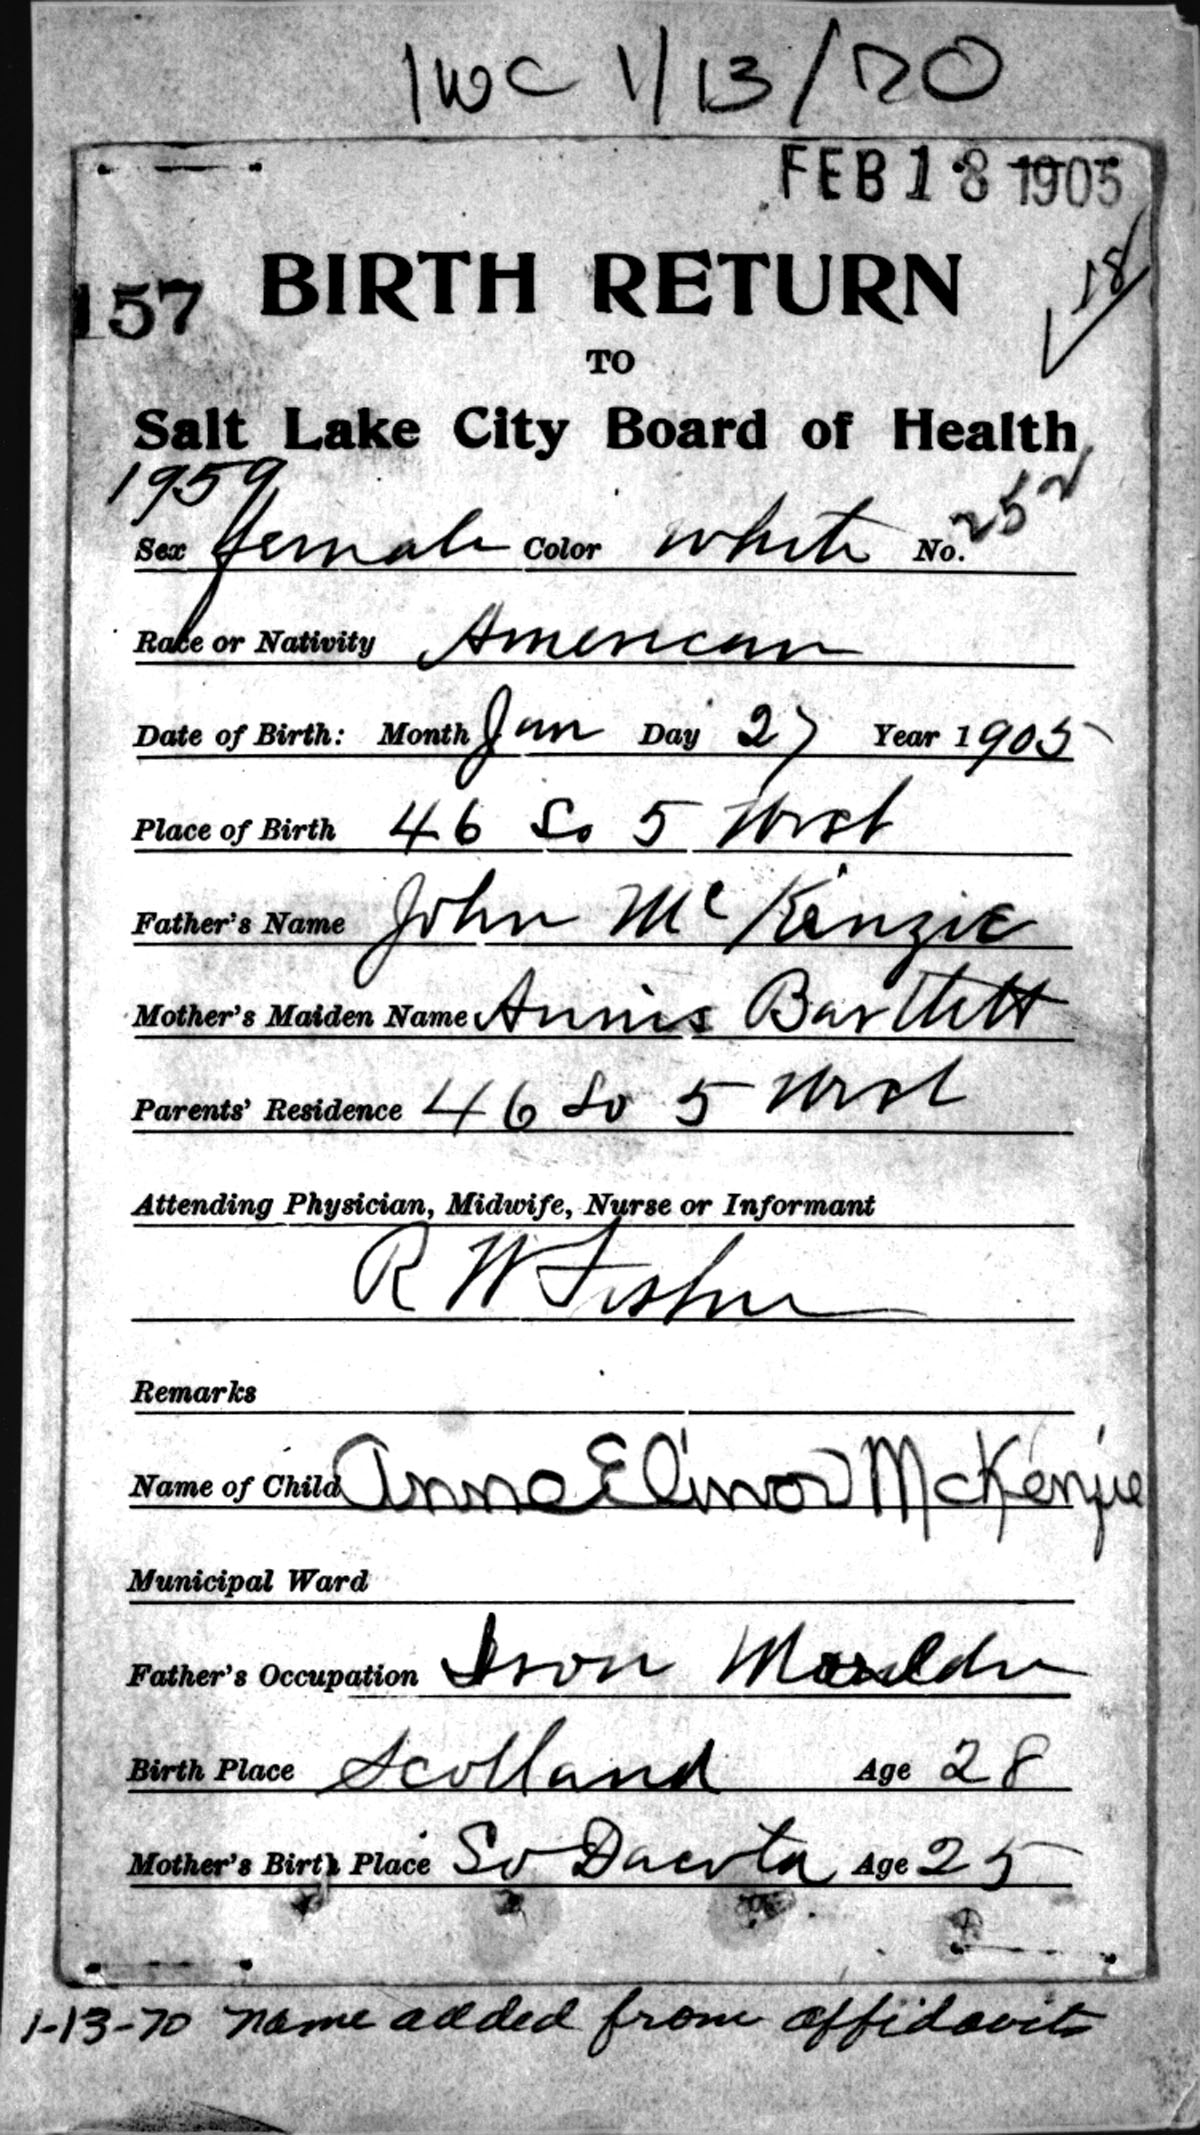 1wc 1/13/70
FEB 18 1905
157 BIRTH RETURN
18
TO
Salt Lake City Board of Health
1959
Sex female Color White No. 252
Race or Nativity American
Date of Birth: Month Jan Day 27 Year 1905
Place of Birth 46 So 5 West
Father's Name John McKenzie
Mother's Maiden Name Annis Bartlett
Parents' Residence 46 So 5 West
Attending Physician, Midwife, Nurse or Informant
R W Fisher
Remarks
Name of Child Anna Elinor McKenzie
Municipal Ward
Father's Occupation Iron Moulder
Birth Place Scotland Age 28
Mother's Birth Place So Dacota Age 25
1-13-70 name added from affidavits